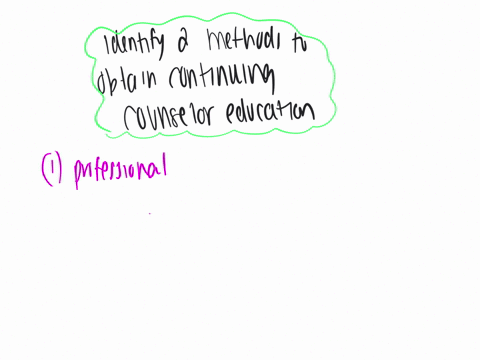 identify 2 methods to
obtain continuing
counselor education
(1) professional